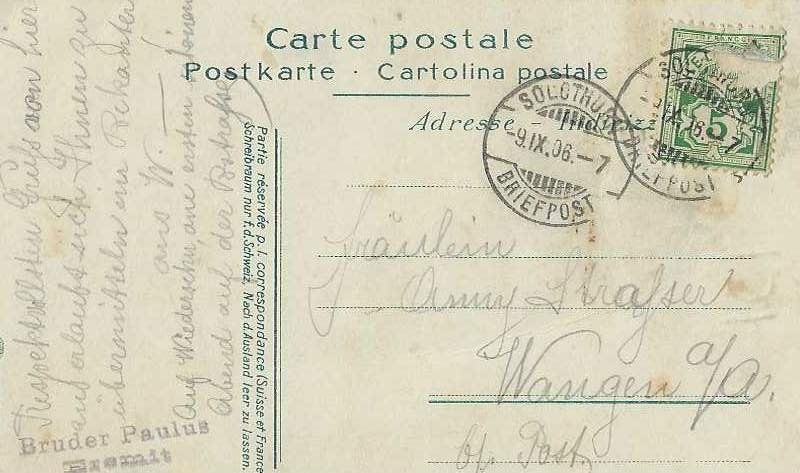 Carte postale
Postkarte · Cartolina postale
Adresse Indirizzo
SOLOTHURN
-9.IX.06.-7
BRIEFPOST
SOLOTHURN
-9.IX.06.-7
BRIEFPOST
5
Partie réservée p. l. correspondance (Suisse et France)
Schreibraum nur f. d. Schweiz. Nach d. Ausland leer zu lassen.
Respektvollsten Gruss von hier
aus erlaubt sich Ihnen zu
übermitteln ein Bekannter
aus W
Auf Wiedersehn, am ersten schönen
Abend auf der Poststrasse
Fräulein
Anny Strasser
Wangen a/A.
b/. Post.
Bruder Paulus
Eremit